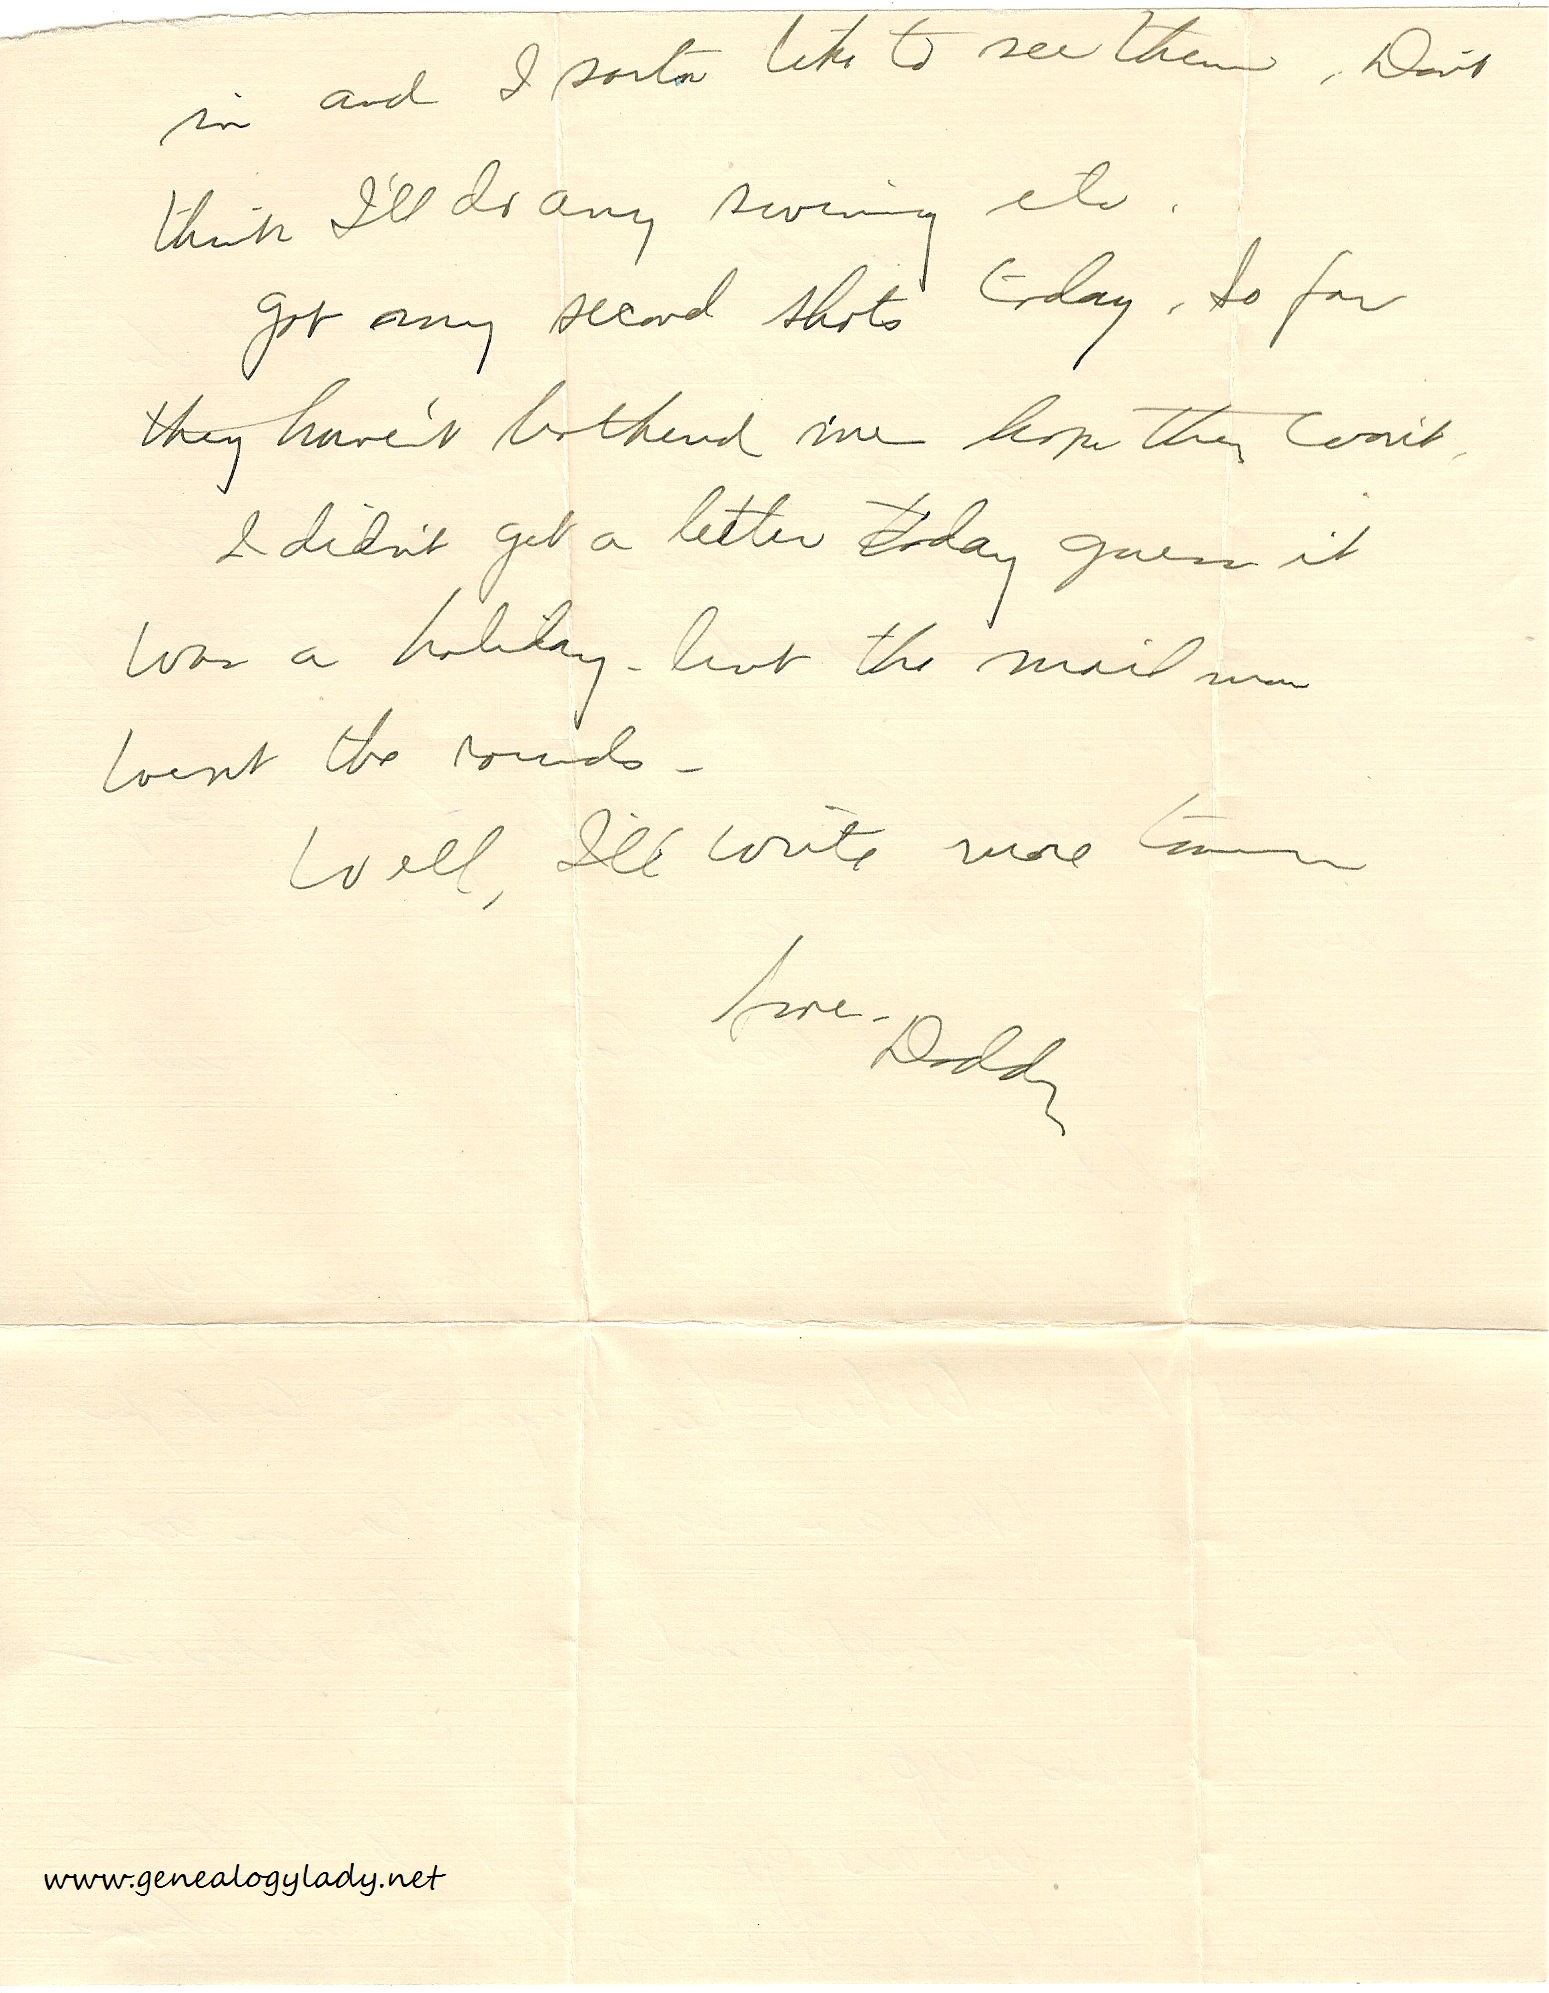 in and I sorta like to see them. Don't
think I'll do any swimming etc.
Got my second shots today. So far
they haven't bothered me hope they won't.
I didn't get a letter today guess it
was a holiday - but the mail man
went the rounds -
Well, I'll write more
Love -
Daddy
www.genealogylady.net